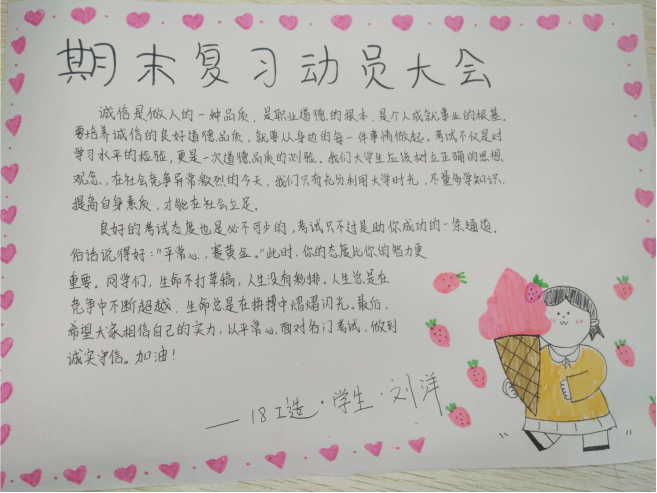 期末复习动员大会
诚信是做人的一种品质，是职业道德的根本，是个人成就事业的根基。
要培养诚信的良好道德品质，就要从身边的每一件事情做起。考试不仅是对
学习水平的检验，更是一次道德品质的测验。我们大学生应该树立正确的思想
观念，在社会竞争异常激烈的今天，我们只有充分利用大学时光，尽量多学知识、
提高自身素质，才能在社会立足。
良好的考试态度也是必不可少的，考试只不过是助你成功的一条通道。
俗话说得好："平常心，赛黄金。"此时，你的态度比你的智力更
重要。同学们，生命不打草稿，人生没有彩排。人生总是在
竞争中不断超越，生命总是在拼搏中熠熠闪光。最后，
希望大家相信自己的实力，以平常心面对各门考试，做到
诚实守信。加油！
——18工造·学生·刘洋